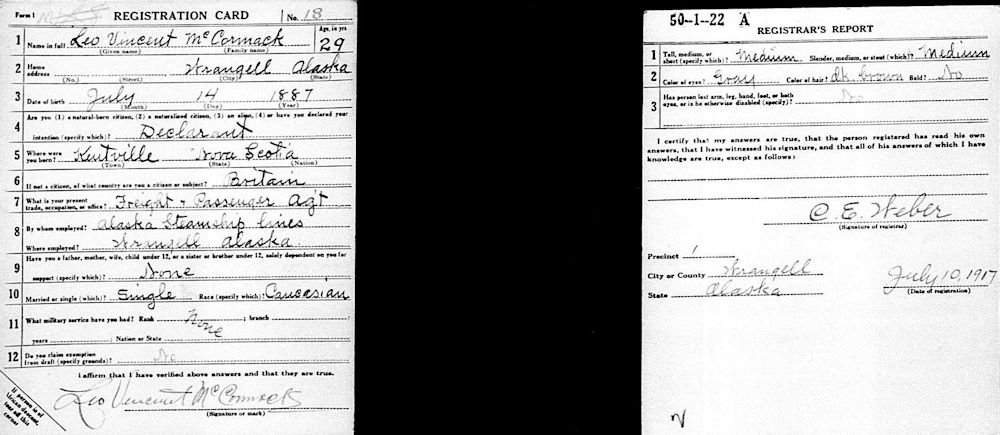 Form 1 REGISTRATION CARD No. 18
1 Name in full Leo Vincent McCormack Age, in yrs. 29
(Given name) (Family name)
2 Home address Wrangell Alaska
(No.) (Street) (City) (State)
3 Date of birth July 14 1887
(Month) (Day) (Year)
4 Are you (1) a natural-born citizen, (2) a naturalized citizen, (3) an alien, (4) or have you declared your
intention (specify which)? Declarant
5 Where were you born? Kentville Nova Scotia
(Town) (State) (Nation)
6 If not a citizen, of what country are you a citizen or subject? Britain
7 What is your present trade, occupation, or office? Freight & Passenger Agt
8 By whom employed? Alaska Steamship lines
Where employed? Wrangell Alaska
9 Have you a father, mother, wife, child under 12, or a sister or brother under 12, solely dependent on you for
support (specify which)? None
10 Married or single (which)? Single Race (specify which)? Caucasian
11 What military service have you had? Rank None ; branch
years ; Nation or State
12 Do you claim exemption from draft (specify grounds)? No
I affirm that I have verified above answers and that they are true.
Leo Vincent McCormack
(Signature or mark)
If person is of
African descent,
tear off this
corner
50-1-22 A
REGISTRAR'S REPORT
1 Tall, medium, or short (specify which)? Medium Slender, medium, or stout (which)? Medium
2 Color of eyes? Gray Color of hair? dk. brown Bald? No
3 Has person lost arm, leg, hand, foot, or both
eyes, or is he otherwise disabled (specify)? No
I certify that my answers are true, that the person registered has read his own
answers, that I have witnessed his signature, and that all of his answers of which I have
knowledge are true, except as follows:
C. E. Weber
(Signature of registrar)
Precinct 1
City or County Wrangell
State Alaska
July 10, 1917
(Date of registration)